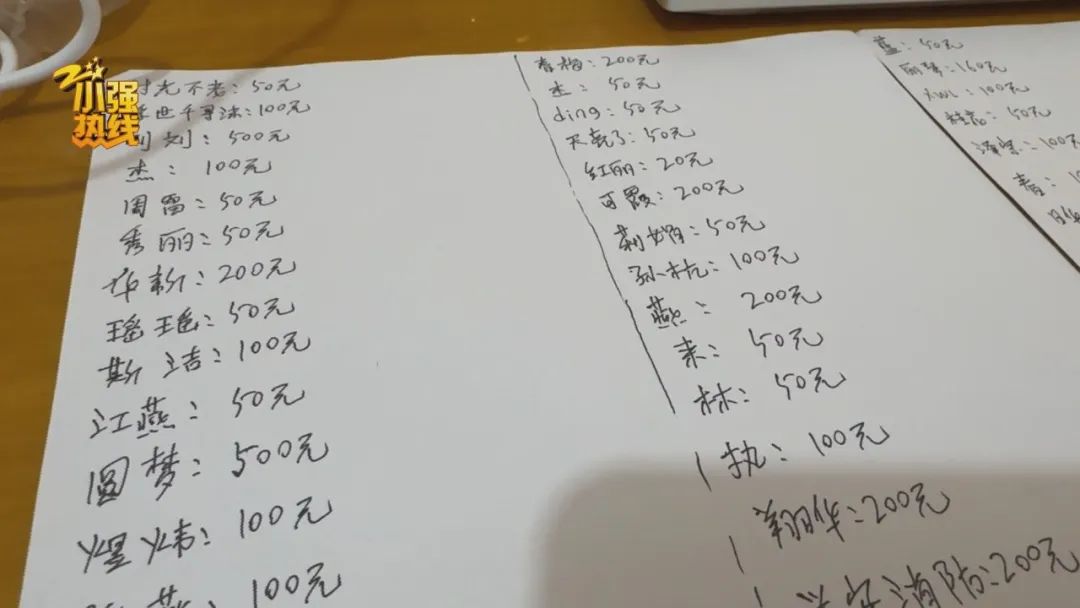 小强热线
时光不老：50元
浮世千寻沫：100元
刘刘：500元
杰：100元
周雷：50元
秀丽：50元
华新：200元
瑶瑶：50元
斯洁：100元
江燕：50元
圆梦：500元
煜炜：100元
燕：100元
春梅：200元
杰：50元
ding：50元
天亮了：50元
红丽：20元
可霞：200元
莉娟：50元
孙杭：100元
燕：200元
来：50元
林：50元
执：100元
翔华：200元
消防：200元
蓝：50元
丽琴：150元
XWL：100元
：50元
：100元
青：1